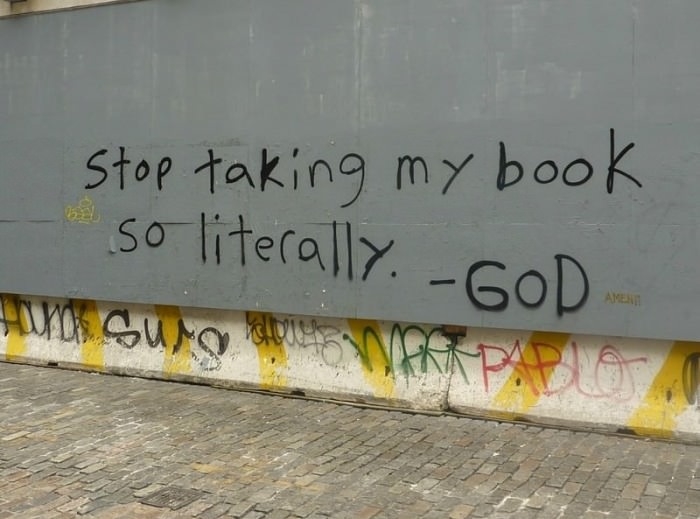 Stop taking my book
so literally.
-GOD
AMEN!!
SURO
MARK
PABLO